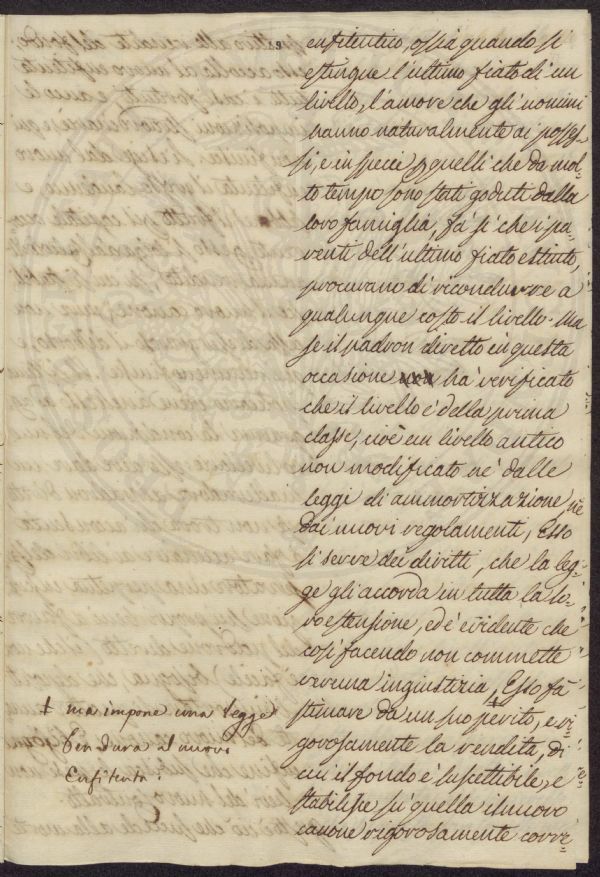 enfiteutico, ossia quando si
estingue l'ultimo fiato di un
livello, l'amore che gli uomini
hanno naturalmente ai posses=
si, e in specie p quelli che da mol=
to tempo sono stati goduti dalla
loro famiglia, fà sì che i pa=
renti dell'ultimo fiato estinto,
procurano di ricondurre a
qualunque costo il livello. Ma
se il padron diretto in questa
occasione non ha verificato
che il livello è della prima
classe, cioè un livello antico
non modificato nè dalle
leggi di ammortizzazione, nè
dai nuovi regolamenti, Esso
si serve dei diritti, che la leg=
ge gli accorda in tutta la lo=
ro estensione, ed è evidente che
così facendo non commette
veruna ingiustizia, ‡ Esso fà
stimare da un suo perito, e ri=
gorosamente la rendita, di
cui il fondo è suscettibile, e
stabilisce sù quella il nuovo
canone rigorosamente corri=
‡ ma impone una legge
ben dura al nuovo
Enfiteuta.